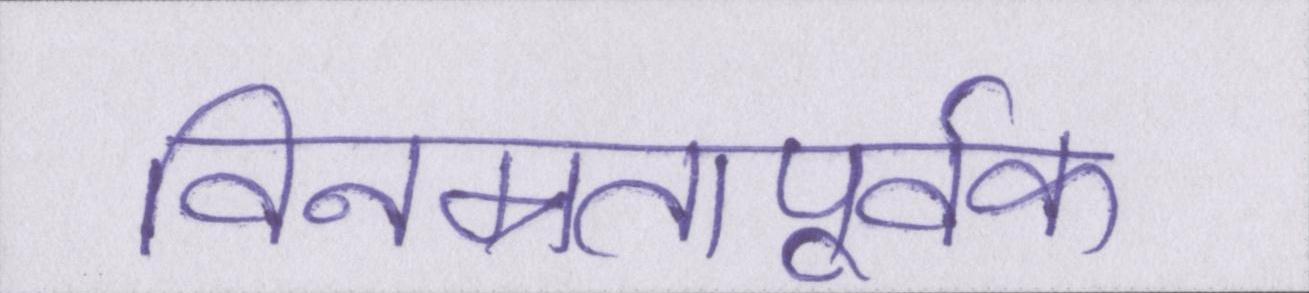 विनम्रतापूर्वक